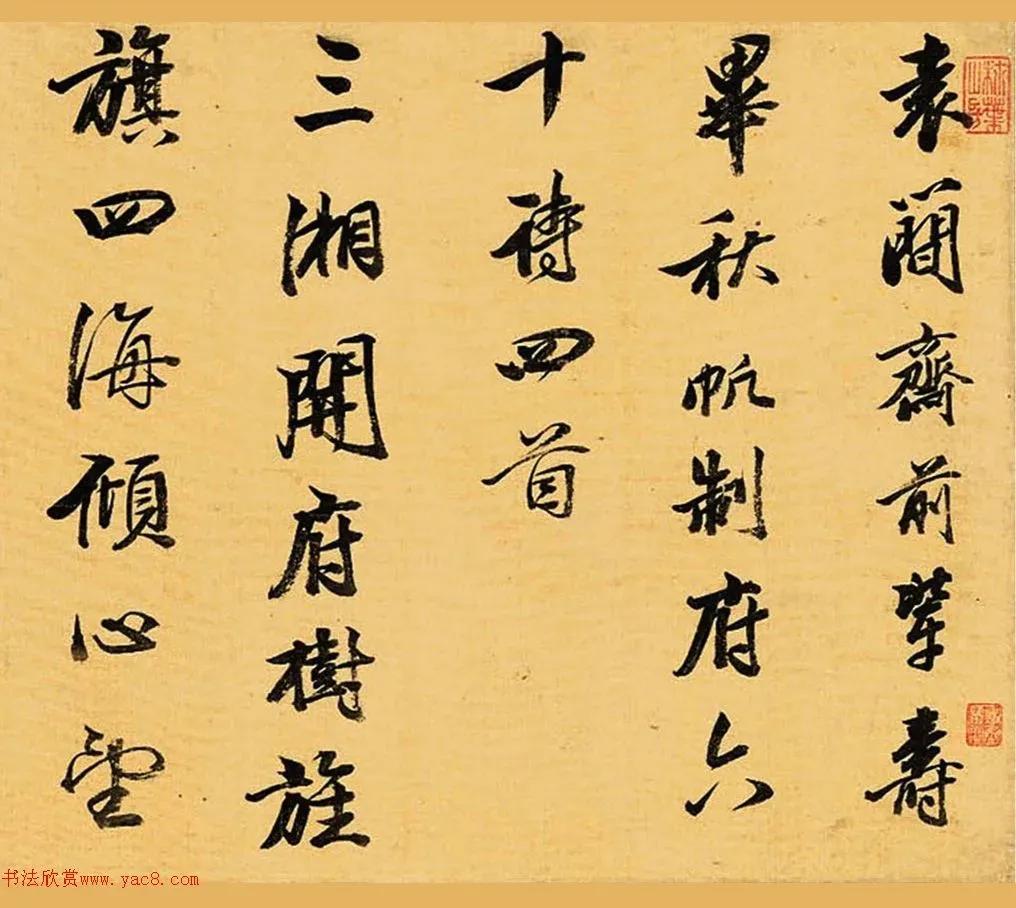 袁簡齋前輩壽
畢秋帆制府六
十詩四首
三湘開府樹旌
旗四海傾心望
书法欣赏www.yac8.com